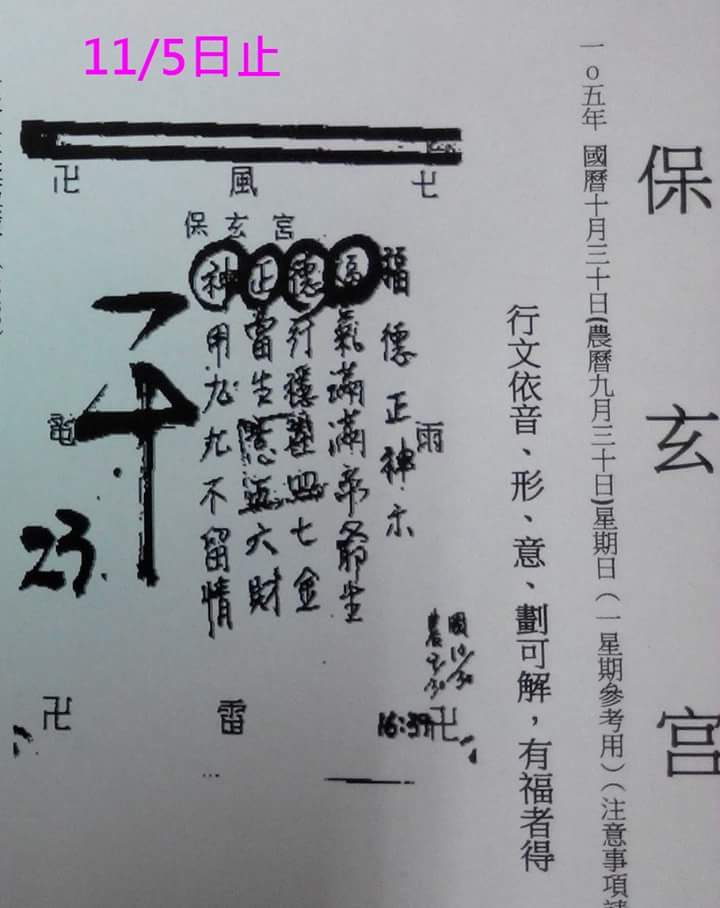 11/5日止
保玄宮
一o五年 國曆十月三十日(農曆九月三十日)星期日（一星期參考用）（注意事項請
行文依音、形、意、劃可解，有福者得
卍 風 卍
保玄宮
電
雨
福德正神示
福氣滿滿
德行穩 四七金
正當生 六財
神用 九不留情
23.
國10/30
農9/30
16:39
卍 雷 卍